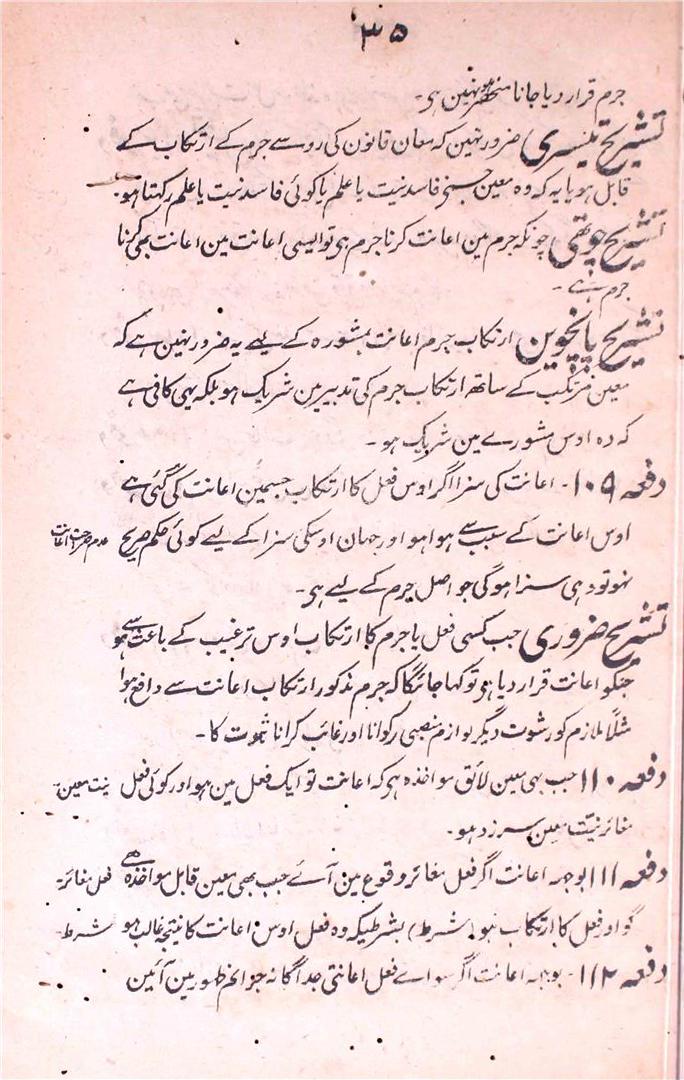 ۳۵
جرم قرار دیا جانا منحصر ہو نہین ہی۔
تشریح تیسری ضرور نہین کہ معان قانون کی روسے جرم کے ارتکاب کے
قابل ہو یا یہ کہ وہ معین جیسی فاسد نیت یا علم یا کوئی فاسد نیت یا علم رکھتا ہو۔
تشریح چوتھی چونکہ جرم مین اعانت کرنا جرم ہی تو ایسی اعانت مین اعانت بھی کرنا
جرم ہے۔
تشریح پانچوین ارتکاب جرم اعانت بمشورہ کے لیے یہ ضرور نہین ہے کہ
معین مرتکب کے ساتھ ارتکاب جرم کی تدبیر مین شریک ہو بلکہ یہی کافی ہے
کہ وہ اوس مشورے مین شریک ہو۔
دفعہ ۱۰۹۔ اعانت کی سزا اگر اوس فعل کا ارتکاب جسمین اعانت کی گئی ہے
اوس اعانت کے سبب سے ہوا ہو اور جہان اوسکی سزا کے لیے کوئی حکم صریح عدم صراحت اعانت
نہو تو وہی سزا ہوگی جو اصل جرم کے لیے ہی۔
تشریح ضروری جب کسی فعل یا جرم کا ارتکاب اوس ترغیب کے باعث سے ہو
جنکو اعانت قرار دیا ہی تو کہا جائیگا کہ جرم مذکور ارتکاب اعانت سے واقع ہوا
مثلاً ملازم کو رشوت دیکر لوازم منصبی رکوانا اور غائب کرانا ثبوت کا۔
دفعہ ۱۱۰ جب بھی معین لائق مواخذہ ہی کہ اعانت تو ایک فعل مین ہو اور کوئی فعل نیت معین۔
مغائر نیت معین سرزد ہو۔
دفعہ ۱۱۱ بوجہ اعانت اگر فعل مغائر وقوع مین آئے جب بھی معین قابل مواخذہ ہے فعل مغائر۔
گو اور فعل کا ارتکاب ہو (شرط) بشرطیکہ وہ فعل اوس اعانت کا نتیجہ غالب ہو شرط۔
دفعہ ۱۱۲۔ بوجہ اعانت اگر سواے فعل اعانتی جداگانہ جرائم ظہور مین آئین